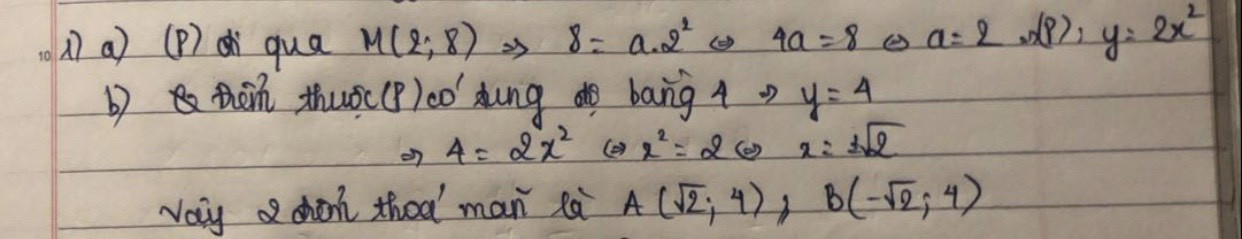 1) a) (P) đi qua M(2; 8) => 8 = a.2² ⇔ 4a = 8 ⇔ a = 2 (P): y = 2x²
b) điểm thuộc (P) có tung độ bằng 4 => y = 4
=> 4 = 2x² ⇔ x² = 2 ⇔ x = ±√2
Vậy 2 điểm thoả mãn là A (√2; 4), B(-√2; 4)